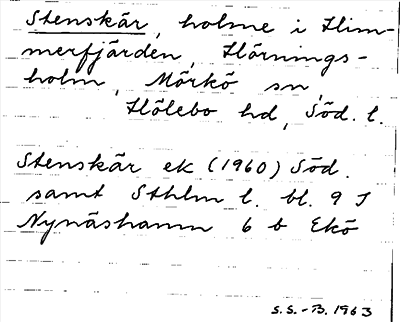 Stenskär, holme i Him-
merfjärden, Hörnings-
holm, Mörkö sn,
Hölebo hd, Söd. l.
Stenskär ek (1960) Söd.
samt Sthlm l. bl. 9 I
Nynäshamn 6 b Ekö
S.S.-B. 1963